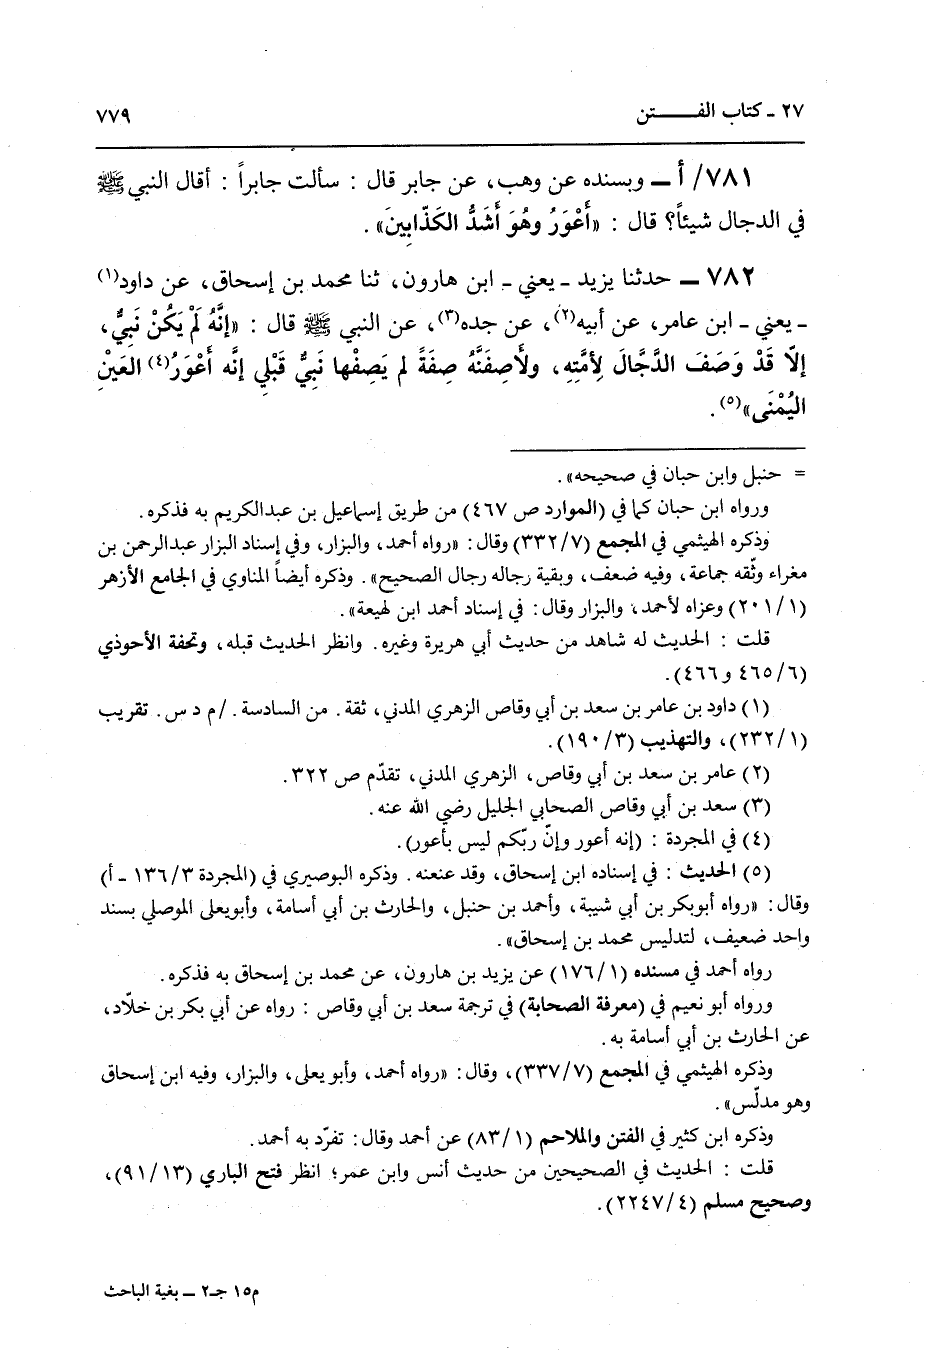 ٢٧ ـ كتاب الفـــــتن ٧٧٩
٧٨١/ أ ــ وبسنده عن وهب، عن جابر قال : سألت جابراً : أقال النبي ﷺ
في الدجال شيئاً؟ قال : «أَعْوَرُ وهُوَ أَشَدُّ الكَذّابِينَ» .
٧٨٢ ــ حدثنا يزيد ـ يعني ـ ابن هارون، ثنا محمد بن إسحاق، عن داود(١)
ـ يعني ـ ابن عامر، عن أبيه(٢)، عن جده(٣)، عن النبي ﷺ قال : «إنَّهُ لَمْ يَكُنْ نَبِيٌّ،
إلّا قَدْ وَصَفَ الدَّجَّالَ لِأمَّتِه، ولأصِفَنَّهُ صِفَةً لم يَصِفْها نَبِيٌّ قَبْلِي إنَّه أعْوَرُ(٤) العَيْنِ
اليُمْنَى»(٥) .
= حنبل وابن حبان في صحيحه» .
ورواه ابن حبان كما في (الموارد ص ٤٦٧) من طريق إسماعيل بن عبدالكريم به فذكره .
وذكره الهيثمي في المجمع (٣٣٢/٧) وقال : «رواه أحمد، والبزار، وفي إسناد البزار عبدالرحمن بن
مغراء وثّقه جماعة، وفيه ضعف، وبقية رجاله رجال الصحيح» . وذكره أيضاً المناوي في الجامع الأزهر
(٢٠١/١) وعزاه لأحمد، والبزار وقال : في إسناد أحمد ابن لهيعة» .
قلت : الحديث له شاهد من حديث أبي هريرة وغيره . وانظر الحديث قبله، وتحفة الأحوذي
(٤٦٥/٦ و ٤٦٦) .
(١) داود بن عامر بن سعد بن أبي وقاص الزهري المدني، ثقة . من السادسة . /م د س . تقريب
(٢٣٢/١)، والتهذيب (١٩٠/٣) .
(٢) عامر بن سعد بن أبي وقاص، الزهري المدني، تقدّم ص ٣٢٢ .
(٣) سعد بن أبي وقاص الصحابي الجليل رضي الله عنه .
(٤) في المجردة : (إنه أعور وإنّ ربّكم ليس بأعور) .
(٥) الحديث : في إسناده ابن إسحاق، وقد عنعنه . وذكره البوصيري في (المجردة ١٣٦/٣ ـ أ)
وقال : «رواه أبوبكر بن أبي شيبة، وأحمد بن حنبل، والحارث بن أبي أسامة، وأبويعلى الموصلي بسند
واحد ضعيف، لتدليس محمد بن إسحاق» .
رواه أحمد في مسنده (١٧٦/١) عن يزيد بن هارون، عن محمد بن إسحاق به فذكره .
ورواه أبو نعيم في (معرفة الصحابة) في ترجمة سعد بن أبي وقاص : رواه عن أبي بكر بن خلّاد،
عن الحارث بن أبي أسامة به .
وذكره الهيثمي في المجمع (٣٣٧/٧)، وقال : «رواه أحمد، وأبو يعلى، والبزار، وفيه ابن إسحاق
وهو مدلّس» .
وذكره ابن كثير في الفتن والملاحم (٨٣/١) عن أحمد وقال : تفرّد به أحمد .
قلت : الحديث في الصحيحين من حديث أنس وابن عمر؛ انظر فتح الباري (٩١/١٣)،
وصحيح مسلم (٢٢٤٧/٤) .
م١٥ جـ٢ ــ بغية الباحث